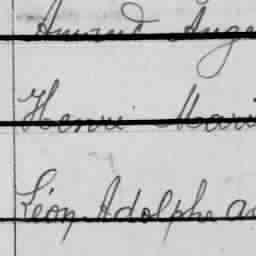 Amand Ange
Henri Mari
Léon Adolphe au